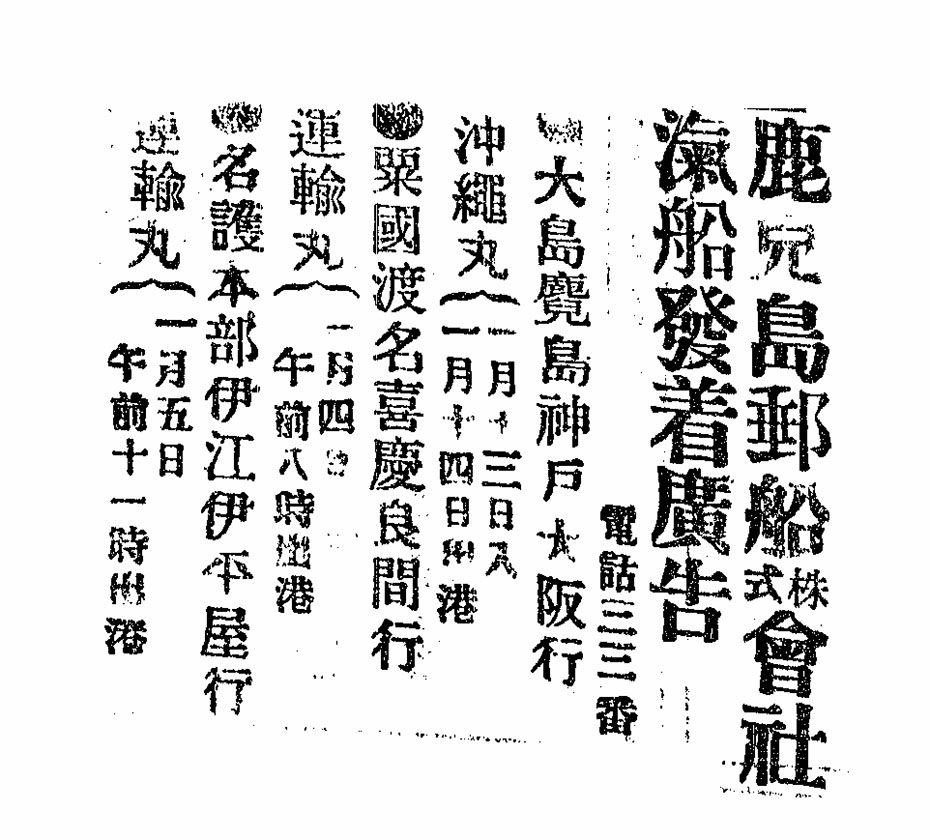 鹿児島郵船株式會社
滊船發着廣告
電話三三番
●大島麑島神戸大阪行
沖繩丸
一月十三日入
一月十四日出港
●粟國渡名喜慶良間行
運輸丸
一月四日
午前八時出港
●名護本部伊江伊平屋行
運輸丸
一月五日
午前十一時出港